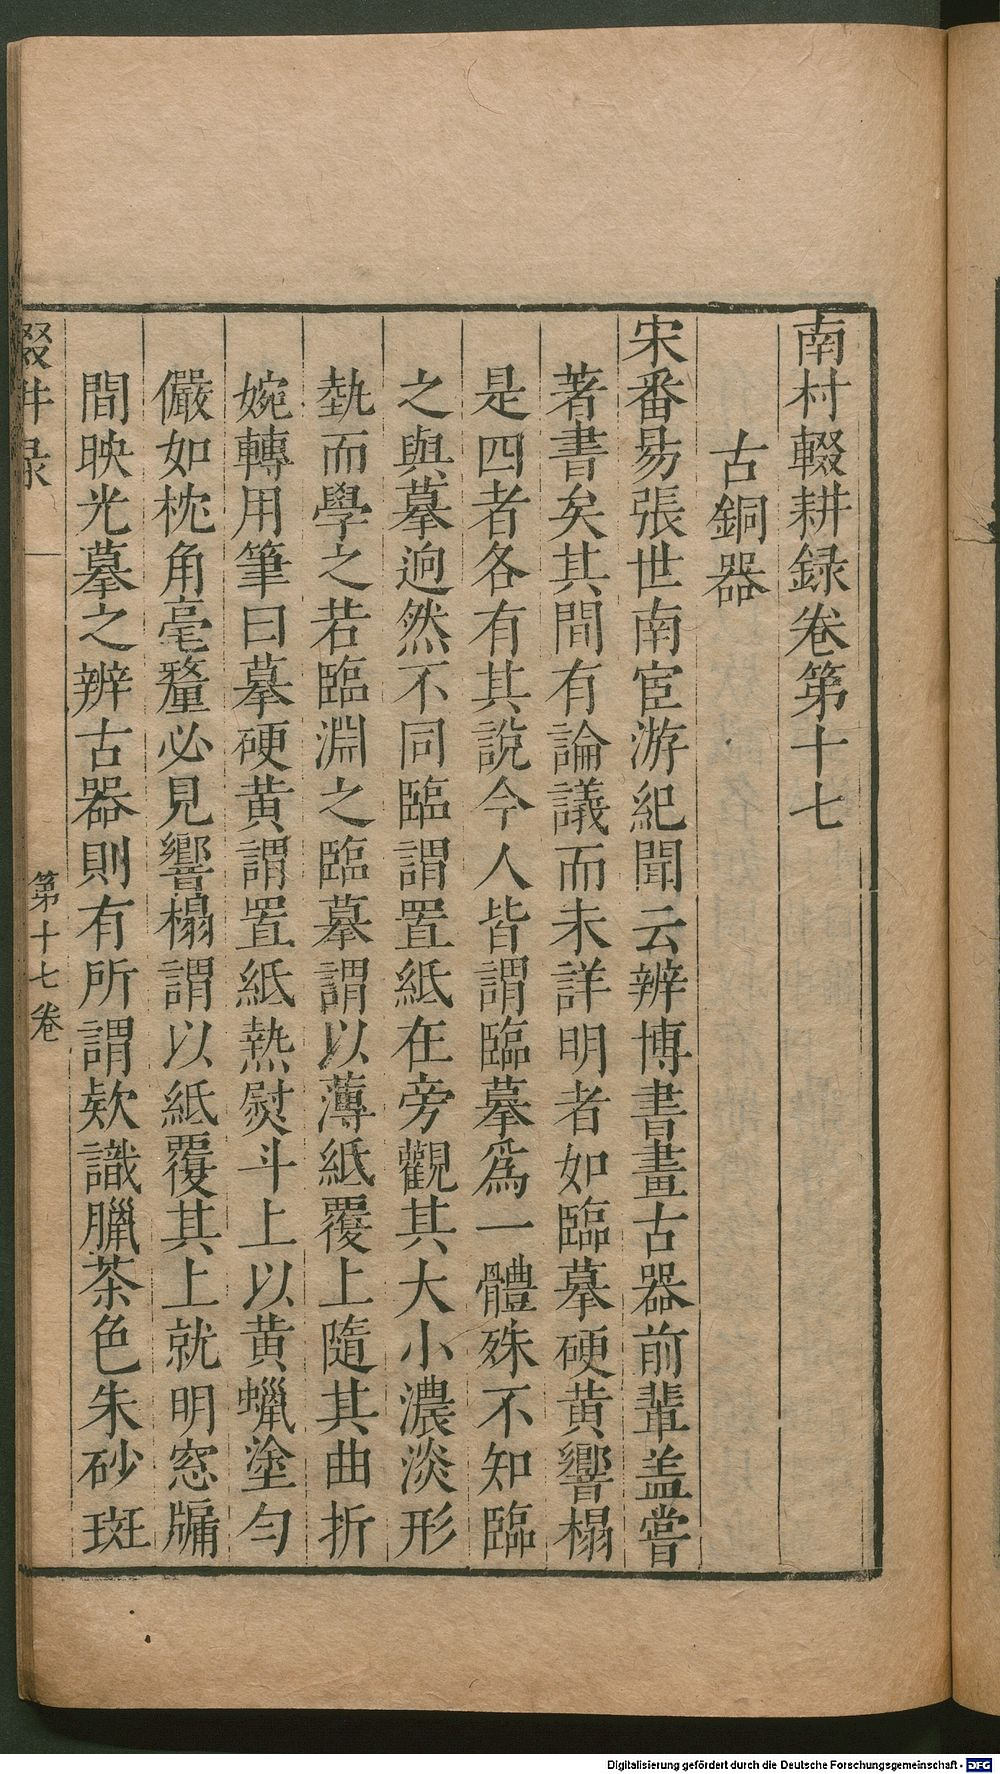 南村輟耕録卷第十七
古銅器
宋番昜張世南宦游紀聞云辨博書畫古器前輩盖嘗
著書矣其間有論議而未詳明者如臨摹硬黄響榻
是四者各有其說今人皆謂臨摹爲一體殊不知臨
之與摹逈然不同臨謂置紙在旁觀其大小濃淡形
埶而學之若臨淵之臨摹謂以薄紙覆上隨其曲折
婉轉用筆曰摹硬黄謂置紙熱熨斗上以黄蠟塗匀
儼如枕角毫釐必見響榻謂以紙覆其上就明窓牖
間映光摹之辨古器則有所謂欵識臘茶色朱砂斑
第十七卷
Digitalisierung gefördert durch die Deutsche Forschungsgemeinschaft - DFG